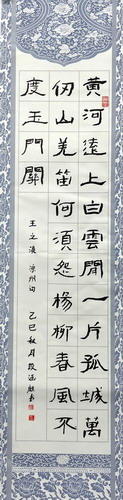 黃河遠上白雲間一片孤城萬
仞山羌笛何須怨楊柳春風不
度玉門關
王之渙 涼州句 乙巳秋月